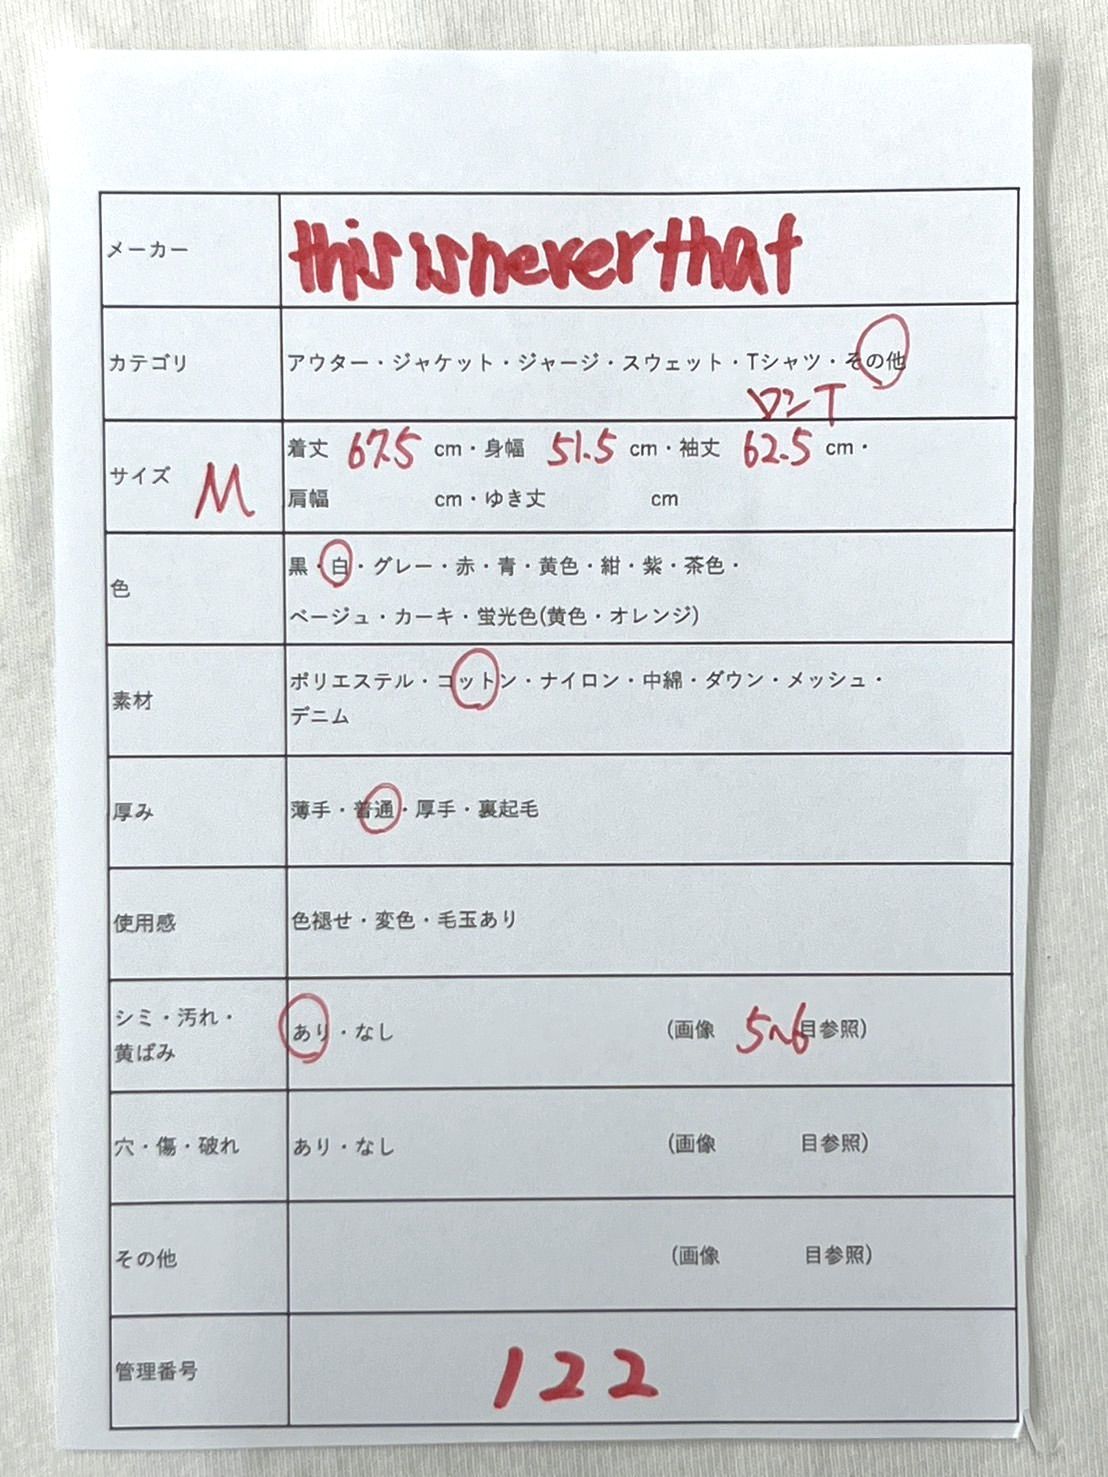 メーカー thisisneverthat
カテゴリ アウター・ジャケット・ジャージ・スウェット・Tシャツ・その他
ロンT
サイズ M 着丈 67.5 cm・身幅 51.5 cm・袖丈 62.5 cm・
肩幅 cm・ゆき丈 cm
色 黒・白・グレー・赤・青・黄色・紺・紫・茶色・
ベージュ・カーキ・蛍光色(黄色・オレンジ)
素材 ポリエステル・コットン・ナイロン・中綿・ダウン・メッシュ・
デニム
厚み 薄手・普通・厚手・裏起毛
使用感 色褪せ・変色・毛玉あり
シミ・汚れ・
黄ばみ あり・なし (画像 5~6目参照)
穴・傷・破れ あり・なし (画像 目参照)
その他 (画像 目参照)
管理番号 122